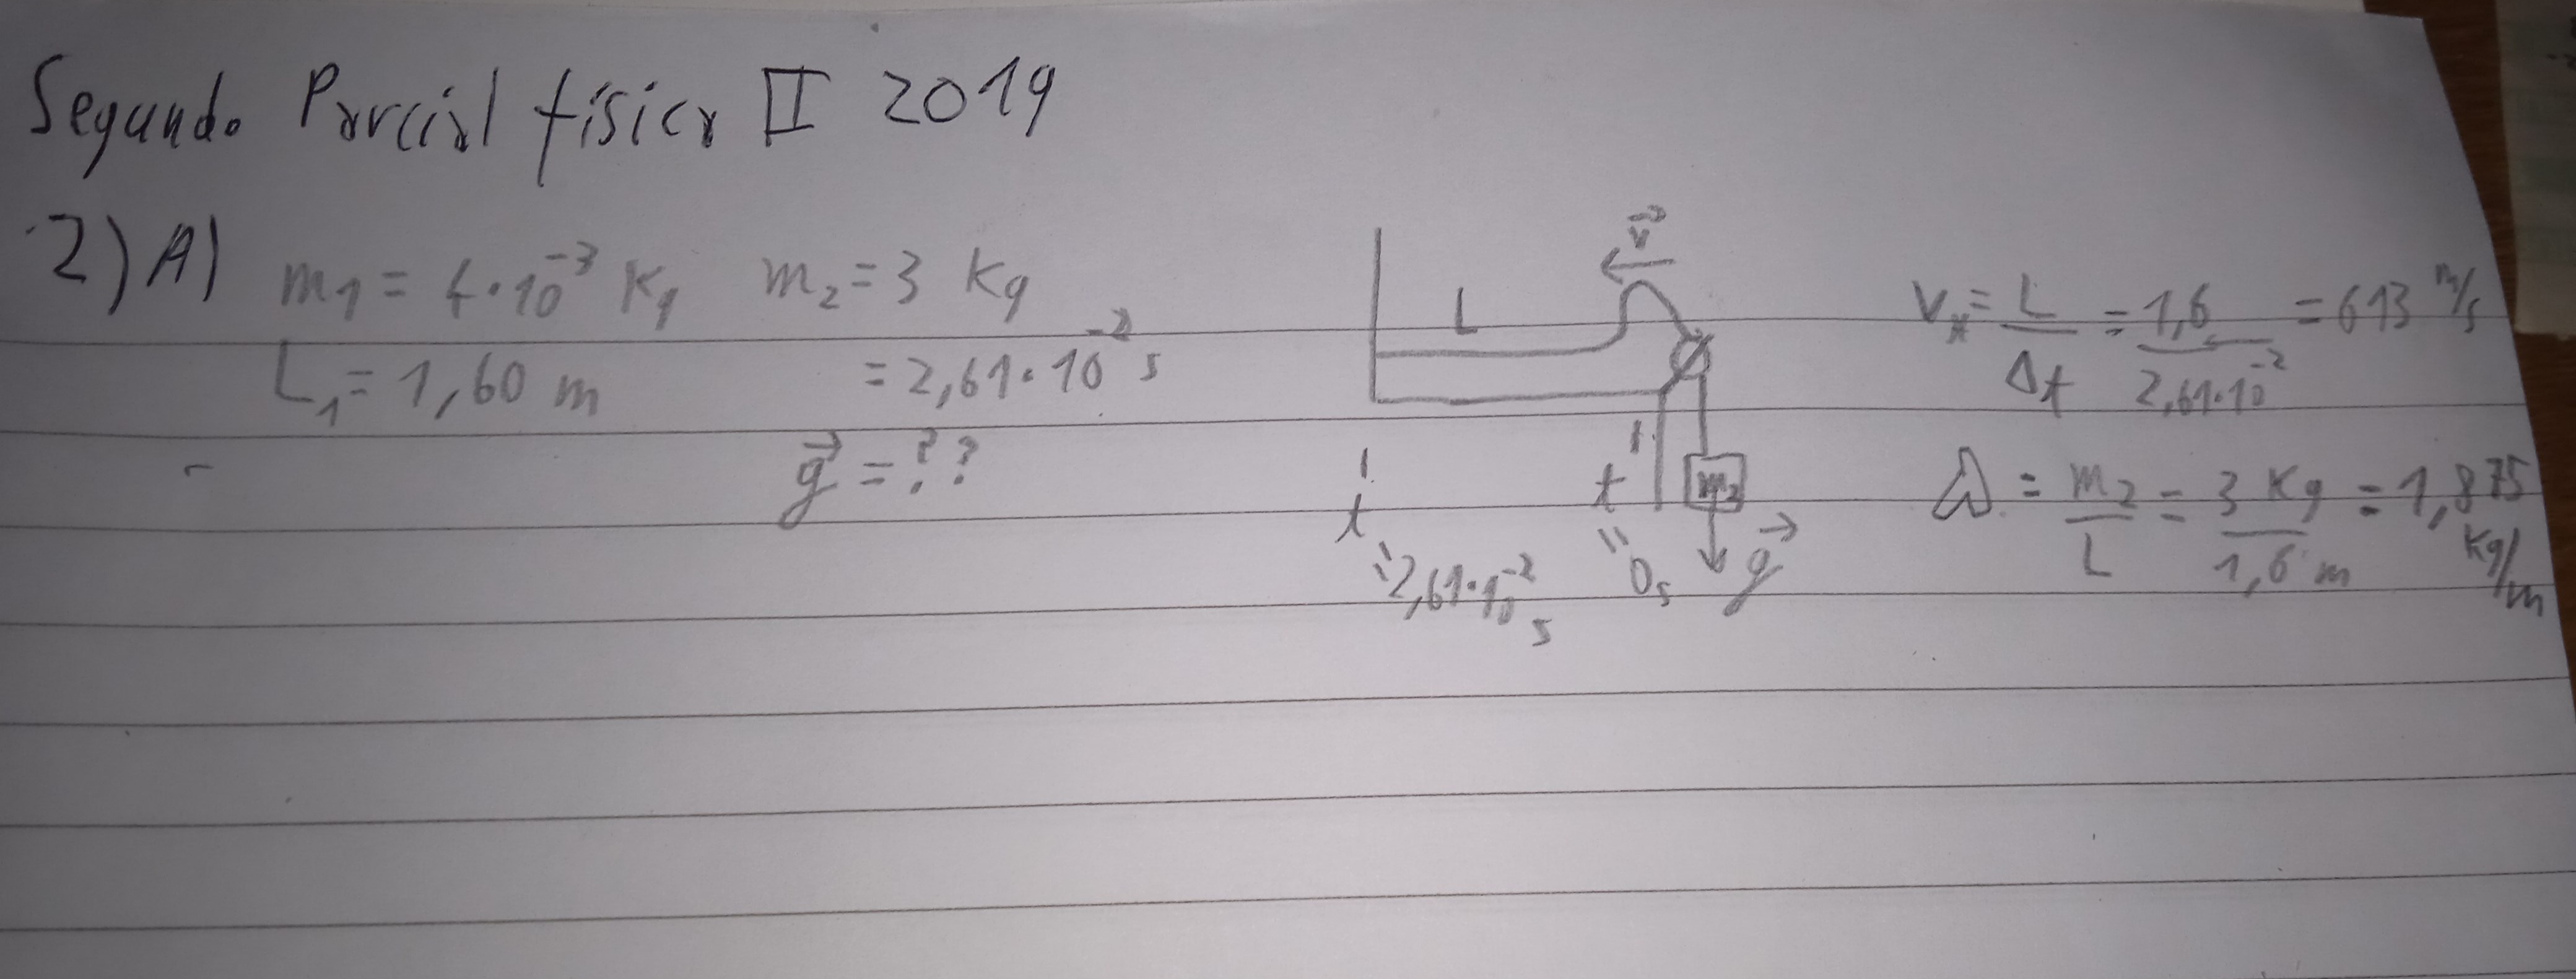 Segundo Parcial física II 2019
2) A) m₁ = 4·10⁻³ Kg m₂ = 3 Kg
L₁ = 1,60 m = 2,61·10⁻² s
g⃗ = ??
v⃗
L
m₂
g⃗
t t
2,61·10⁻² s 0s
Vₓ = L/Δt = 1,6/2,61·10⁻² = 613 m/s
λ = m₂/L = 3 Kg/1,6 m = 1,875 Kg/m